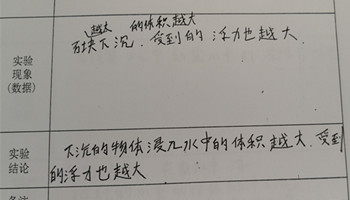 越大 的体积越大
砝块下沉.受到的浮力也越大
实验
现象
(数据)
实验
结论
下沉的物体浸入水中的体积越大.受到
的浮力也越大
备注